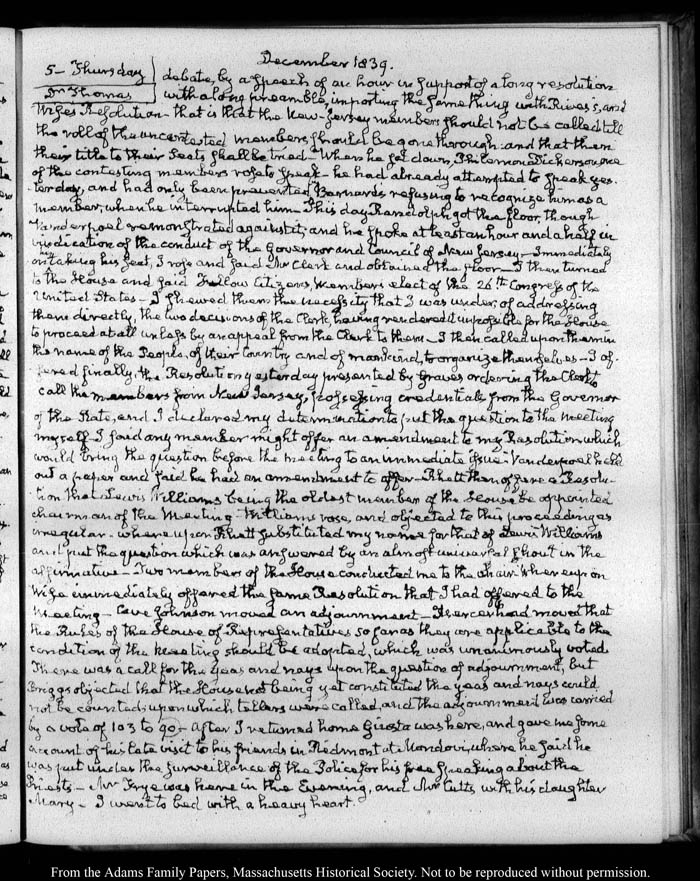 December 1839.
5 – Thursday
Dr Thomas
debate, by a speech of an hour in support of a long resolution
with a long preamble, importing the same thing with Rives's, and
Wise's Resolution – that is that the New-Jersey members should not be called till
the roll of the uncontested members, should be gone through – and that then
their title to their Seats shall be tried – When he sat down, Philemon Dickerson, one
of the contesting members rose to speak – he had already attempted to speak yes-
terday, and had only been prevented Barnard's refusing to recognize him as a
member, when he interrupted him – This day Randolph got the floor, though
Vanderpoel remonstrated against it, and he spoke at least an hour and a half in
vindication of the conduct of the Governor and Council of New Jersey – Immediately
on taking his Seat, I rose and said Mr Clerk and obtained the floor – I then turned
to the House and said Fellow Citizens, Members elect of the 26th Congress of the
United States – I shewed them the necessity that I was under, of addressing
them directly, the two decisions of the Clerk, having rendered it impossible for the House
to proceed at all unless by an appeal from the Clerk to them – I then called upon them in
the name of the People, of their Country and of mankind, to organize themselves – I of-
fered finally, the Resolution yesterday presented by Graves ordering the Clerk to
call the members from New Jersey, possessing credentials from the Governor
of the State, and I declared my determination to put the question to the meeting
myself – I said any member might offer an amendment to my Resolution which
would bring the question before the meeting to an immediate issue – Vanderpoel held
out a paper and said he had an amendment to offer – Rhett then offered a Resolu-
tion that Lewis Williams being the oldest member of the House be appointed
chairman of the Meeting – Williams rose, and objected to this proceeding as
irregular – whereupon Rhett substituted my name for that of Lewis Williams
and put the question which was answered by an almost universal shout in the
affirmative – Two members of the House conducted me to the Chair whereupon
Wise immediately offered the same Resolution that I had offered to the
Meeting – Cave Johnson moved an adjournment – Mercer had moved that
the Rules of the House of Representatives so far as they are applicable to the
condition of the Meeting should be adopted, which was unanimously voted
There was a call for the yeas and nays upon the question of adjournment, but
Briggs objected that the House not being yet constituted the yeas and nays could
not be counted, upon which tellers were called, and the adjournment was carried
by a vote of 103 to 90 – After I returned home Giusta was here, and gave me some
account of his late visit to his friends in Piedmont at Mondovi, where he said he
was put under the surveillance of the Police for his free speaking about the
Priests – Mr Frye was here in the Evening, and Mr Cutts with his daughter
Mary – I went to bed with a heavy heart.
From the Adams Family Papers, Massachusetts Historical Society. Not to be reproduced without permission.